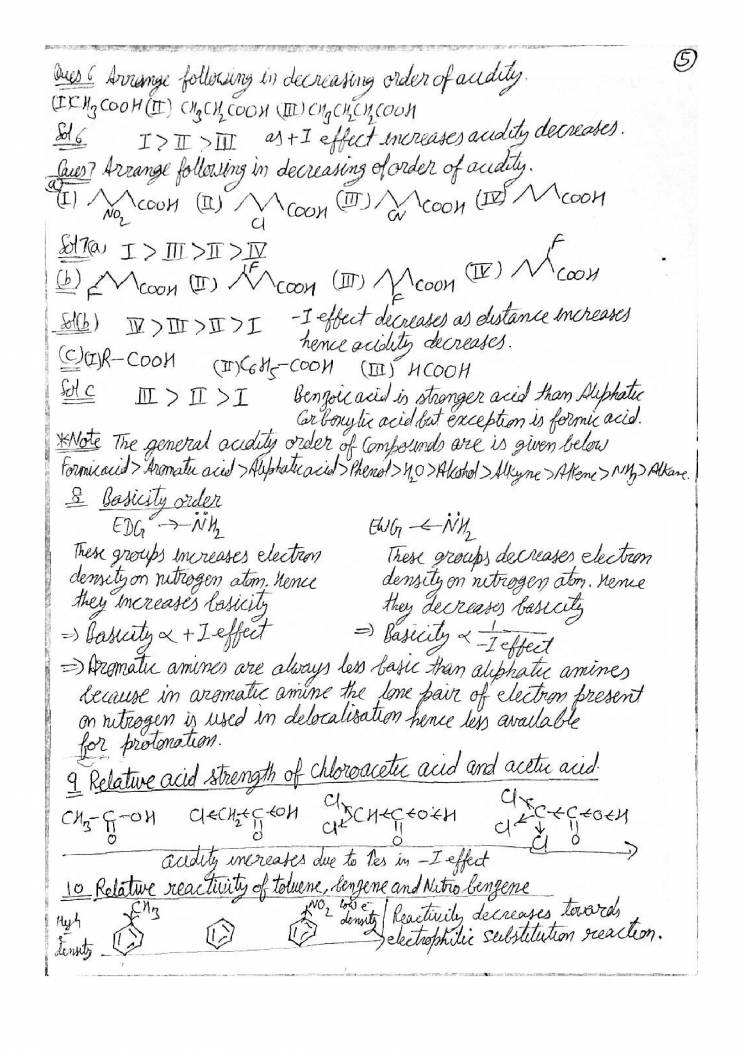 5
Ques 6 Arrange following in decreasing order of acidity.
(I) CH3COOH (II) CH3CH2COOH (III) CH3CH2CH2COOH
Sol 6 I > II > III as +I effect increases acidity decreases.
Ques 7 Arrange following in decreasing of order of acidity.
a) (I) COOH NO2 (II) COOH Cl (III) COOH CN (IV) F COOH
Sol 7(a) I > III > II > IV
(b) (I) F COOH (II) F COOH (III) F COOH (IV) F COOH
Sol(b) IV > III > II > I -I effect decreases as distance increases
hence acidity decreases.
(C) (I) R-COOH (II) C6H5-COOH (III) HCOOH
Sol C III > II > I Benzoic acid is stronger acid than Aliphatic
Carboxylic acid but exception is formic acid.
*Note The general acidity order of Compounds are is given below
Formic acid > Aromatic acid > Aliphatic acid > Phenol > H2O > Alcohol > Alkyne > Alkene > NH3 > Alkane.
8 Basicity order
EDG → N̈H2 EWG ← N̈H2
These groups increases electron These groups decreases electron
density on nitrogen atom. Hence density on nitrogen atom. Hence
they increases basicity they decreases basicity
⇒ Basicity ∝ +I effect ⇒ Basicity ∝ 1/-I effect
⇒ Aromatic amines are always less basic than aliphatic amines
because in aromatic amine the lone pair of electron present
on nitrogen is used in delocalisation hence less available
for protonation.
9 Relative acid strength of chloroacetic acid and acetic acid.
CH3-C-OH O Cl←CH2←C←OH O Cl Cl CH←C←O←H O Cl Cl Cl C←C←O←H O
acidity increases due to ↑es in -I effect
10 Relative reactivity of toluene, benzene and Nitro benzene
High e- density CH3 NO2 low e- density Reactivity decreases towards
electrophilic substitution reaction.